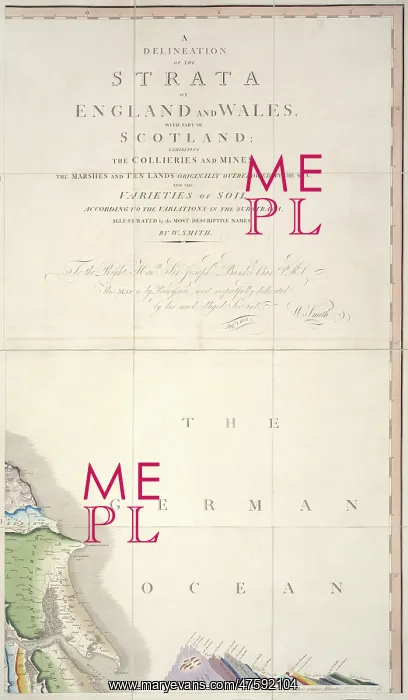 A
DELINEATION
OF THE
STRATA
OF
ENGLAND AND WALES,
WITH PART OF
SCOTLAND;
EXHIBITING
THE COLLIERIES AND MINES
THE MARSHES AND FEN LANDS ORIGINALLY OVERFLOWED BY THE SEA,
AND THE
VARIETIES OF SOIL
ACCORDING TO THE VARIATIONS IN THE SUBSTRATA,
ILLUSTRATED by the MOST DESCRIPTIVE NAMES
BY W. SMITH.
To the Right Honble. Sir Joseph Banks Bart. P.R.S.
This MAP is by Permission most respectfully dedicated
by his most obliged Servant
W Smith
THE
GERMAN
OCEAN
ME
PL
ME
PL
www.maryevans.com/47592104